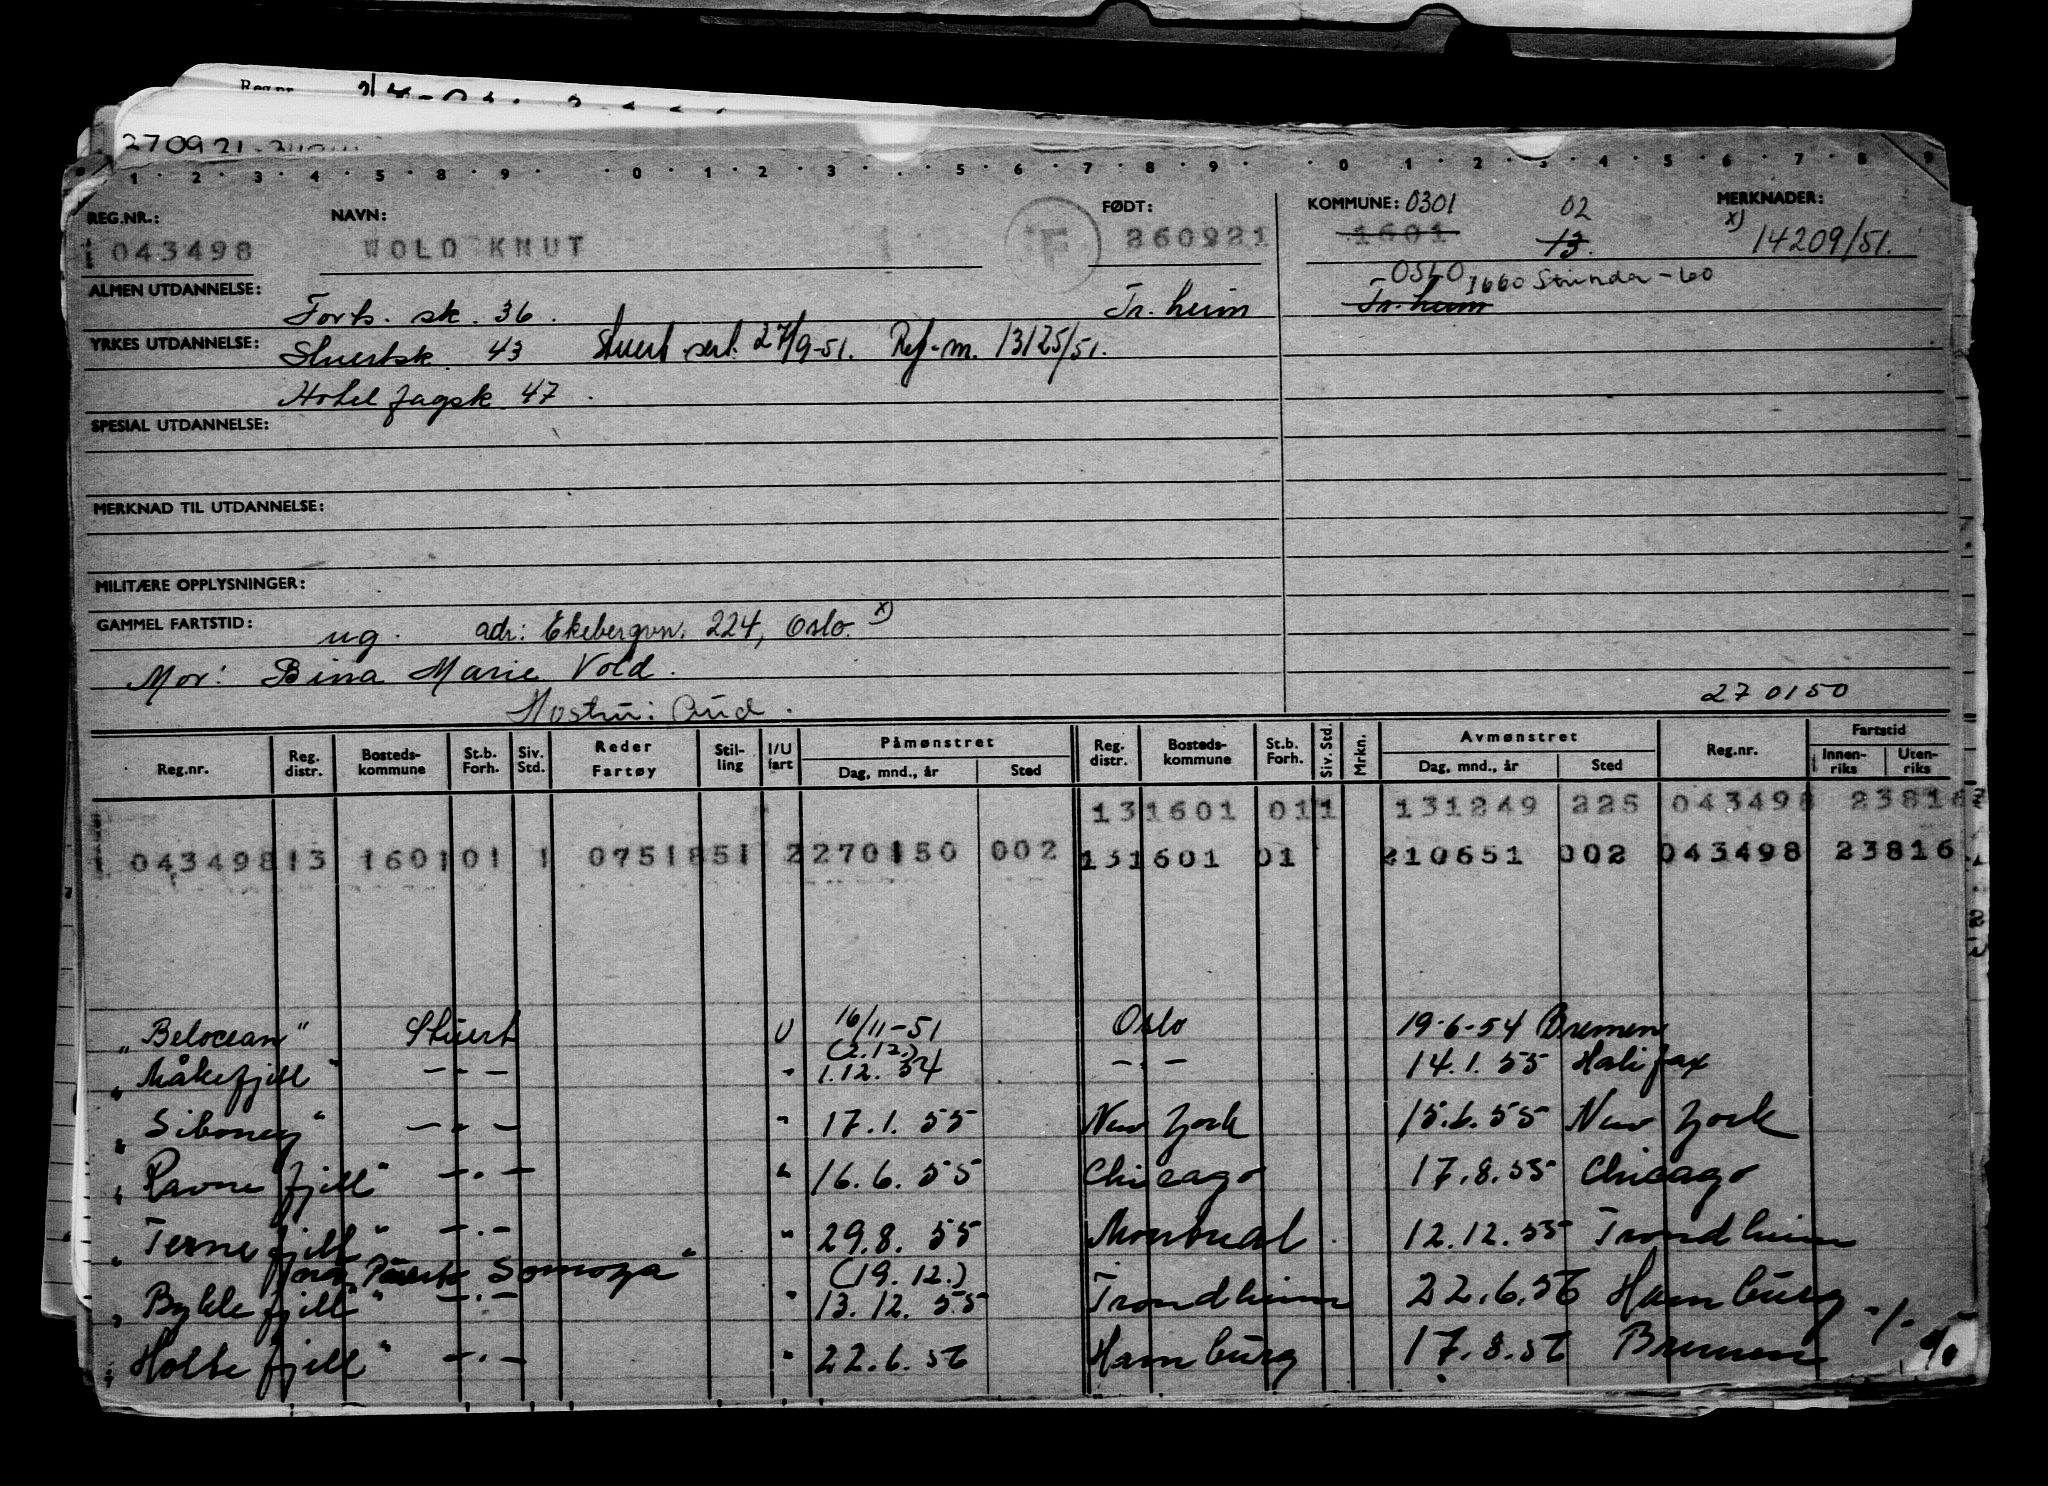 Reg.nr.
270921
1 2 3 4 5 8 9 0 1 2 3 5 6 7 8 9 0 1 2 3 4 5 6 7 8 9
REG.NR.: NAVN: FØDT: KOMMUNE: 0301 02 MERKNADER:
043498 WOLD KNUT F 260921 1601 13 x) 14209/51.
ALMEN UTDANNELSE: Forts. sk. 36. Tr. heim OSLO 1660 Strinda - 60
Tr. heim
YRKES UTDANNELSE: Stuertsk 43 Stuert sert. 27/9-51. Ref-m. 13125/51.
Hotel fagsk 47.
SPESIAL UTDANNELSE:
MERKNAD TIL UTDANNELSE:
MILITÆRE OPPLYSNINGER:
GAMMEL FARTSTID: ug. adr: Ekebergvn. 224, Oslo. x)
Mor: Bina Marie Vold.
270150
Hustru: Aud.
Reg.nr. Reg. distr. Bosteds-kommune St.b. Forh. Siv. Std. Reder Fartøy Stil-ling I/U fart Påmønstret Dag, mnd., år Sted Reg. distr. Bosteds-kommune St.b. Forh. Siv. Std. Mrkn. Avmønstret Dag, mnd., år Sted Reg.nr. Fartstid Innen-riks Uten-riks
131601 011 131249 225 043498 23816
043498 13 1601 01 1 0751851 2 270150 002 131601 01 210651 002 043498 23816
"Belocean" Stuert U 16/11-51 Oslo 19-6-54 Bremen
"Måkefjell" - . - " (2.12.) 1.12. 54 - . - 14.1.55 Halifax
"Siboney" - . - " 17.1.55 New York 15.6.55 New York
"Ravnefjell" - . - " 16.6.55 Chicago 17.8.55 Chicago
"Ternefjell" - . - " 29.8.55 Montreal 12.12.55 Trondheim
Somoza" (19.12.)
"Byklefjell" - . - " 13.12.55 Trondheim 22.6.56 Hamburg -/-
"Holtefjell" - . - " 22.6.56 Hamburg 17.8.56 Bremen